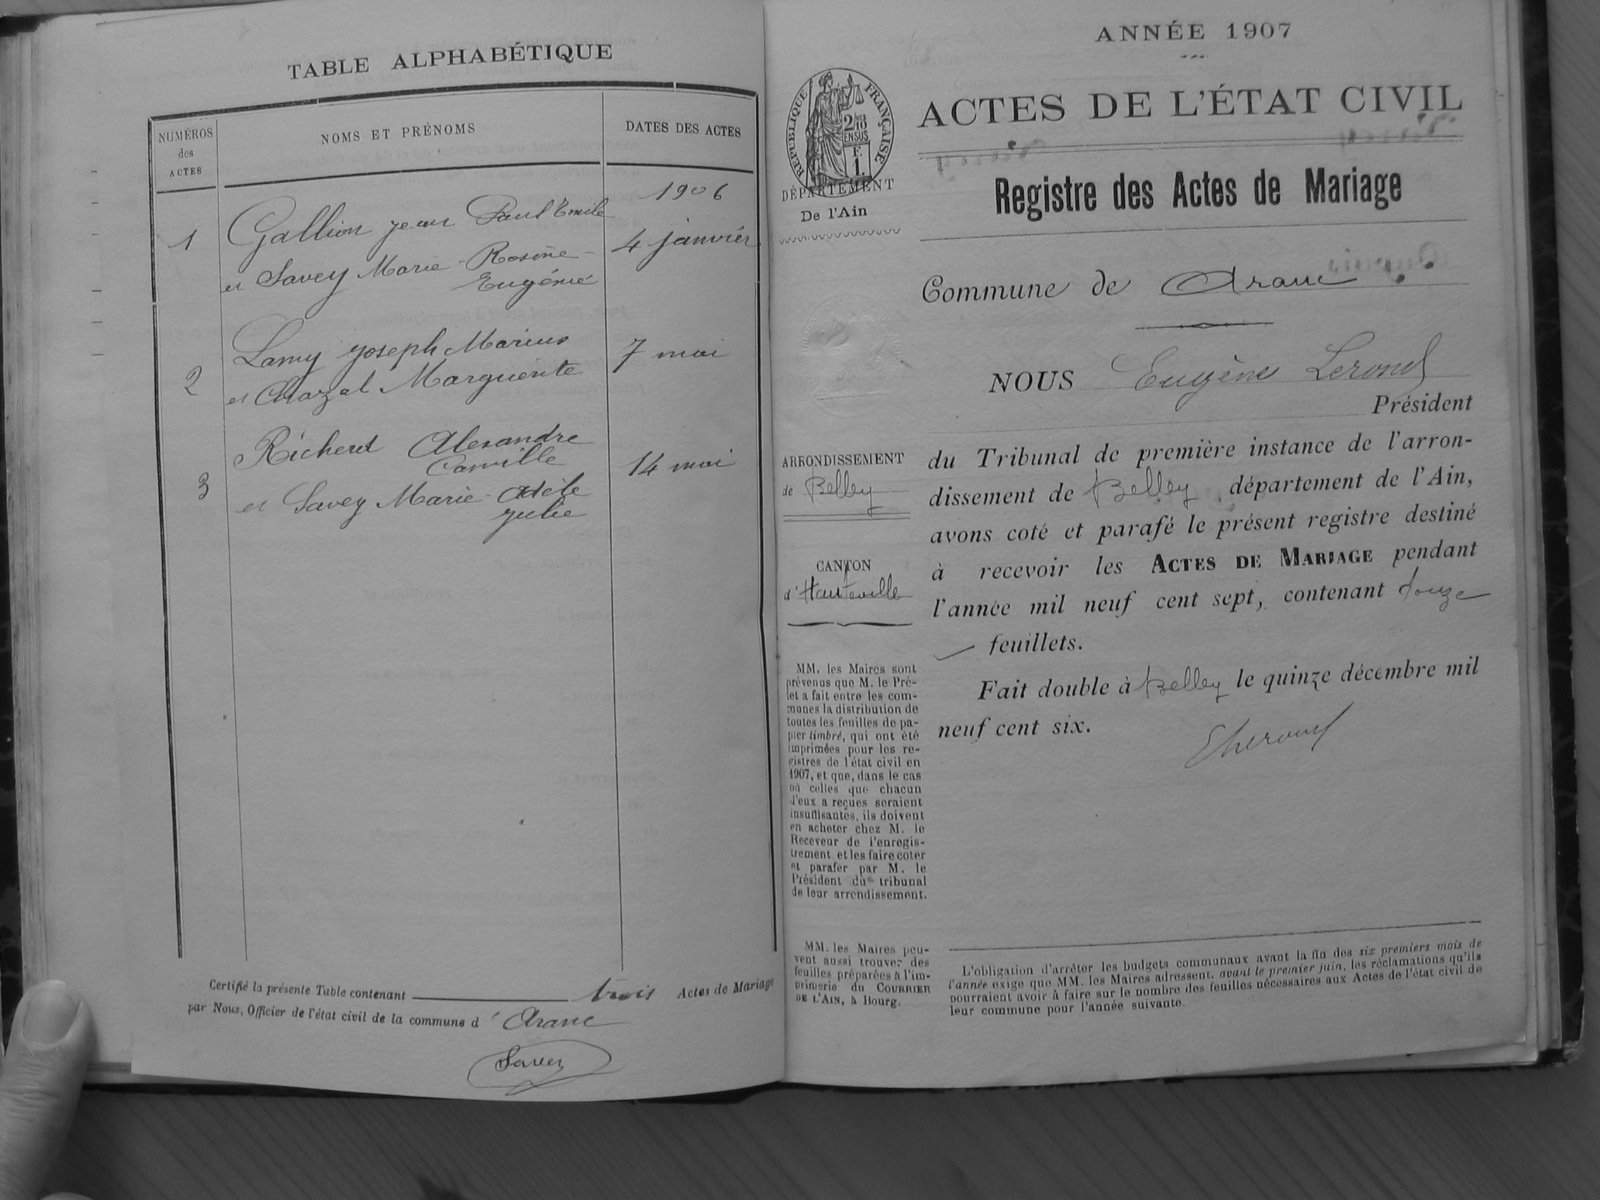 TABLE ALPHABÉTIQUE
NUMÉROS des ACTES
NOMS ET PRÉNOMS
DATES DES ACTES
1906
1
Gallion jean Paul Emile
4 janvier
et Savey Marie-Rosine-
Eugénie
2
Lamy joseph Marius
7 mai
et Chazal Marguerite
3
Richerd Alexandre
Camille
14 mai
et Savey Marie-Adèle
julie
Certifié la présente Table contenant trois Actes de Mariage
par Nous, Officier de l'état civil de la commune d' Aranc
Savey
ANNÉE 1907
ACTES DE L'ÉTAT CIVIL
RÉPUBLIQUE FRANÇAISE
2/10 EN SUS
F 1.
DÉPARTEMENT
De l'Ain
Registre des Actes de Mariage
Commune de Aranc
NOUS Eugène
Président
du Tribunal de première instance de l'arron-
dissement de Belley, département de l'Ain,
avons coté et parafé le présent registre destiné
à recevoir les ACTES DE MARIAGE pendant
l'année mil neuf cent sept, contenant douze
feuillets.
Fait double à Belley le quinze décembre mil
neuf cent six.
ARRONDISSEMENT
de Belley
CANTON
d'Hauteville
MM. les Maires sont
prévenus que M. le Pré-
fet a fait entre les com-
munes la distribution de
toutes les feuilles de pa-
pier timbré, qui ont été
imprimées pour les re-
gistres de l'état civil en
1907, et que, dans le cas
où celles que chacun
d'eux a reçues seraient
insuffisantes, ils doivent
en acheter chez M. le
Receveur de l'enregis-
trement et les faire coter
et parafer par M. le
Président du tribunal
de leur arrondissement.
MM. les Maires peu-
vent aussi trouver des
feuilles préparées à l'im-
primerie du COURRIER
DE L'AIN, à Bourg.
L'obligation d'arrêter les budgets communaux avant la fin des six premiers mois de
l'année exige que MM. les Maires adressent, avant le premier juin, les réclamations qu'ils
pourraient avoir à faire sur le nombre des feuilles nécessaires aux Actes de l'état civil de
leur commune pour l'année suivante.